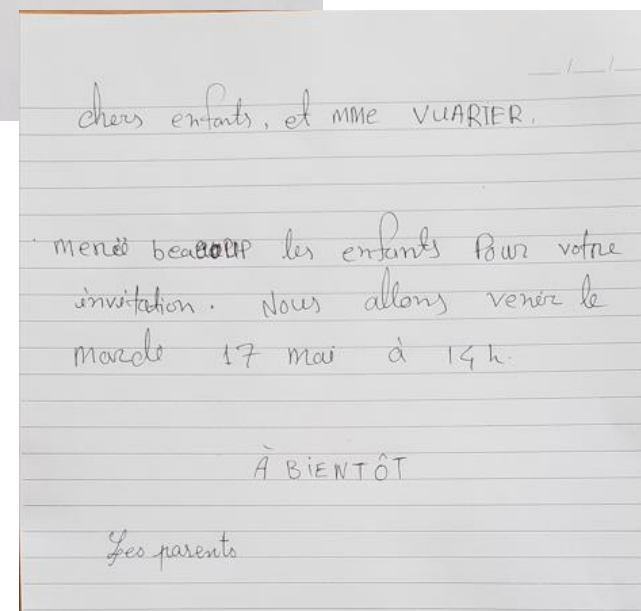 chers enfants, et MME VUARIER.
menci beaucoup les enfants Pour votre
invitation. Nous allons venir le
marde 17 mai à 14h.
À BIENTÔT
Les parents